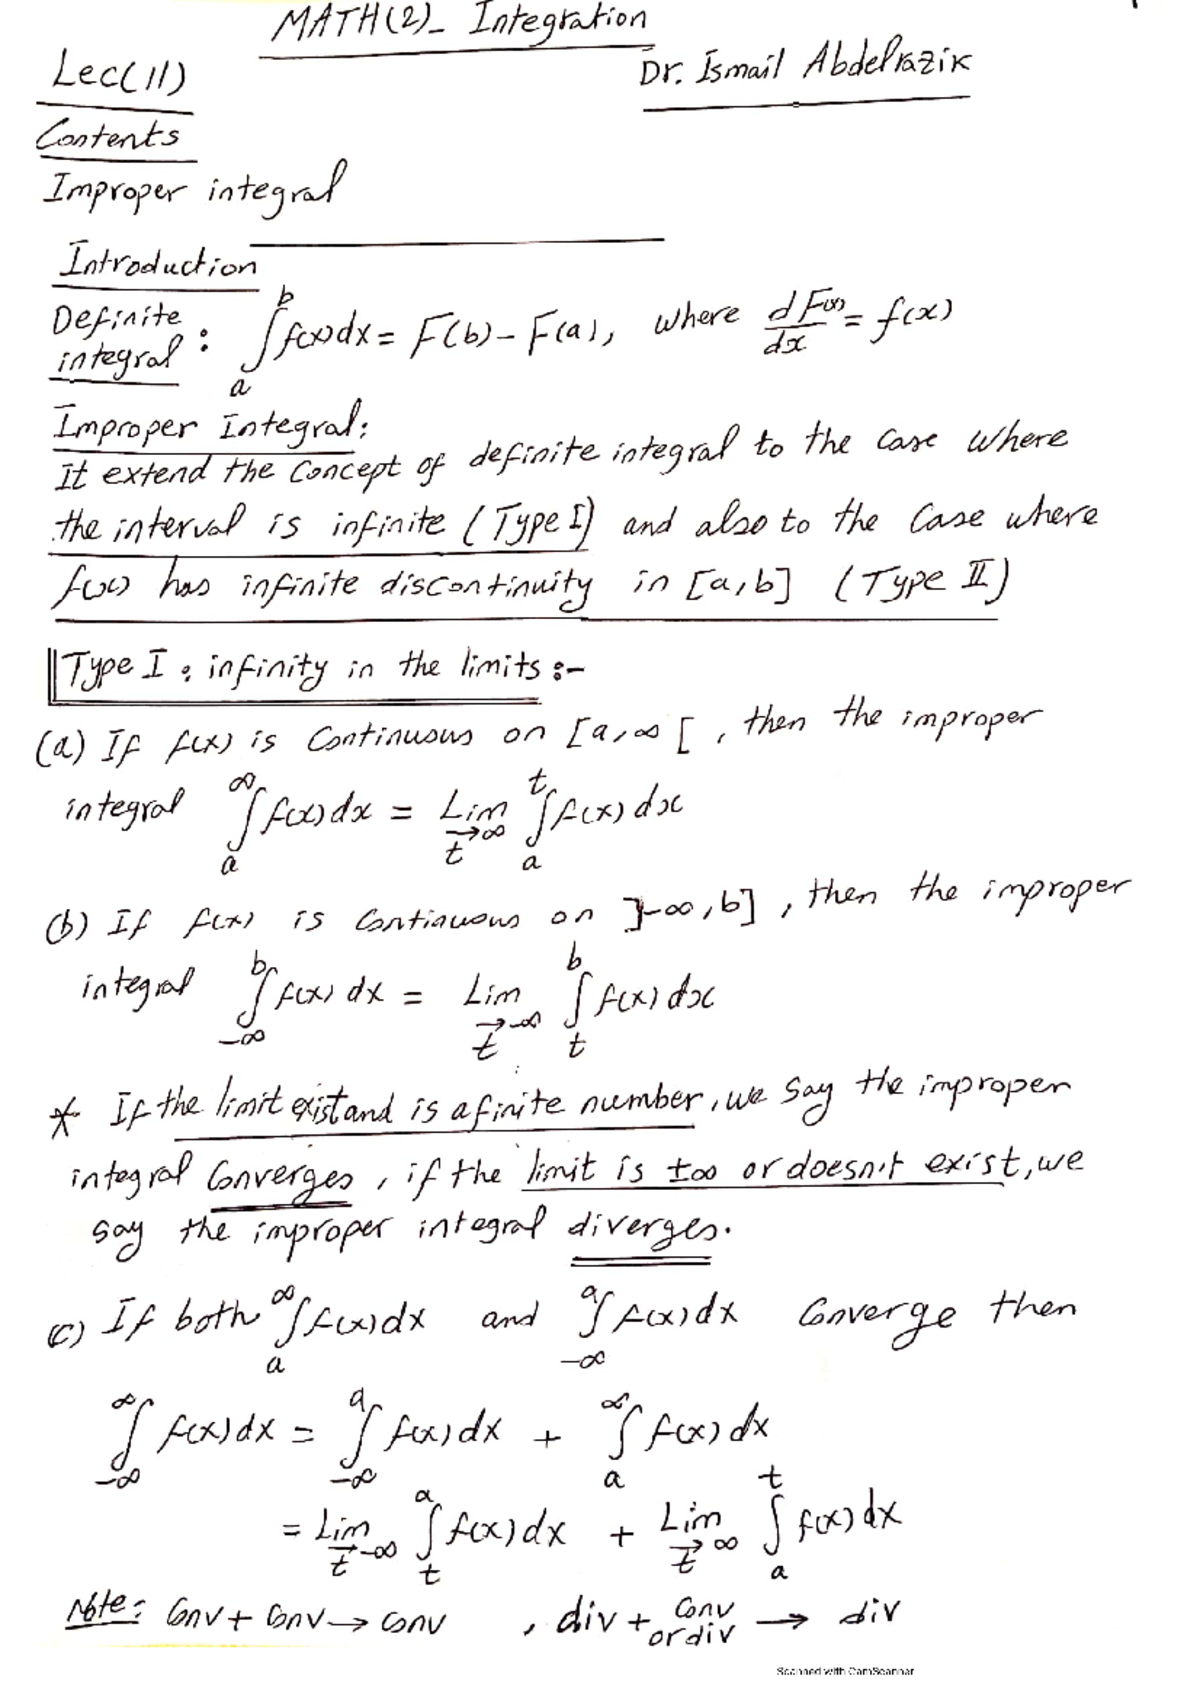 MATH(2)_ Integration
Lec(11) Dr. Ismail Abdelrazik
Contents
Improper integral
Introduction
Definite integral : ∫_a^b f(x)dx = F(b) - F(a), where dF(x)/dx = f(x)
Improper Integral:
It extend the Concept of definite integral to the Case where
the interval is infinite (Type I) and also to the Case where
f(x) has infinite discontinuity in [a,b] (Type II)
Type I : infinity in the limits :-
(a) If f(x) is Continuous on [a,∞[ , then the improper
integral ∫_a^∞ f(x)dx = Lim_{t→∞} ∫_a^t f(x)dx
(b) If f(x) is Continuous on ]-∞,b] , then the improper
integral ∫_{-∞}^b f(x)dx = Lim_{t→-∞} ∫_t^b f(x)dx
* If the limit exist and is a finite number, we say the improper
integral Converges , if the limit is ±∞ or doesn't exist, we
say the improper integral diverges.
(c) If both ∫_a^∞ f(x)dx and ∫_{-∞}^a f(x)dx Converge then
∫_{-∞}^∞ f(x)dx = ∫_{-∞}^a f(x)dx + ∫_a^∞ f(x)dx
= Lim_{t→-∞} ∫_t^a f(x)dx + Lim_{t→∞} ∫_a^t f(x)dx
Note: Conv + Conv → conv , div + Conv or div → div
Scanned with CamScanner